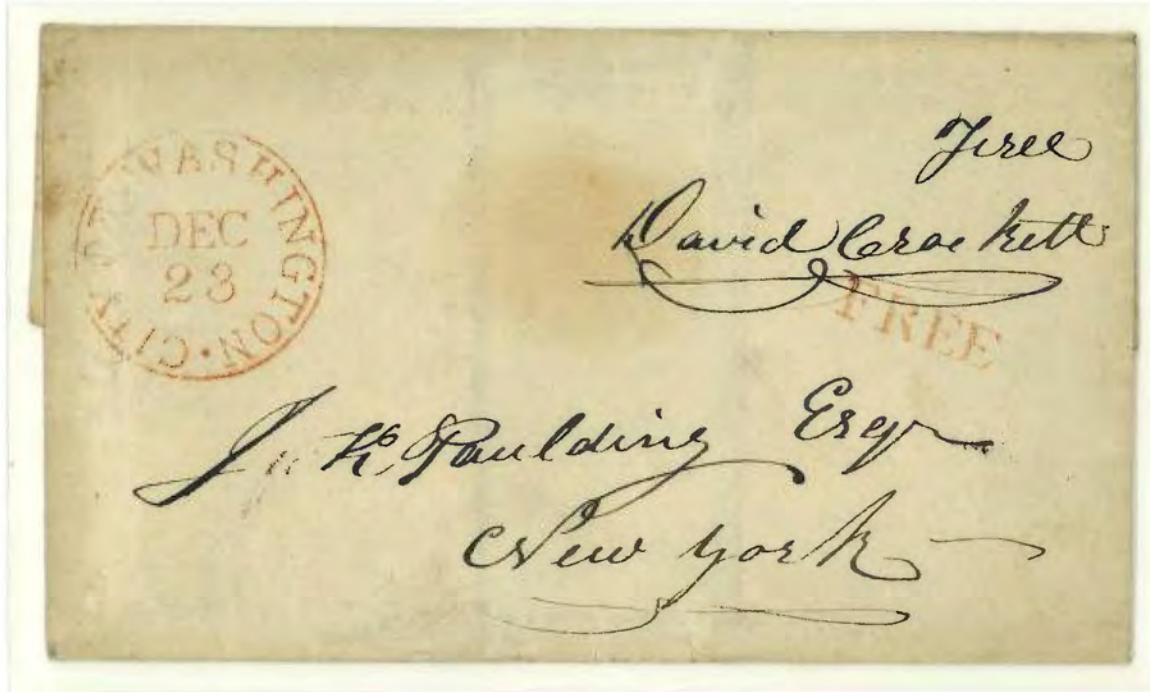 CITY OF WASHINGTON
DEC
23
Free
David Crockett
FREE
J. K. Paulding Esqr
New york